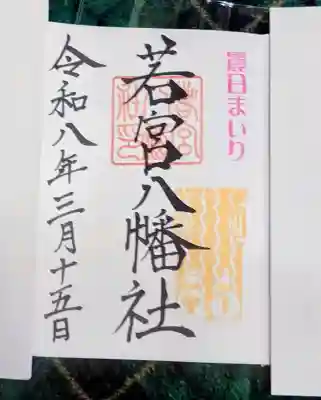 日まいり
若宮八幡社
令和八年三月十五日